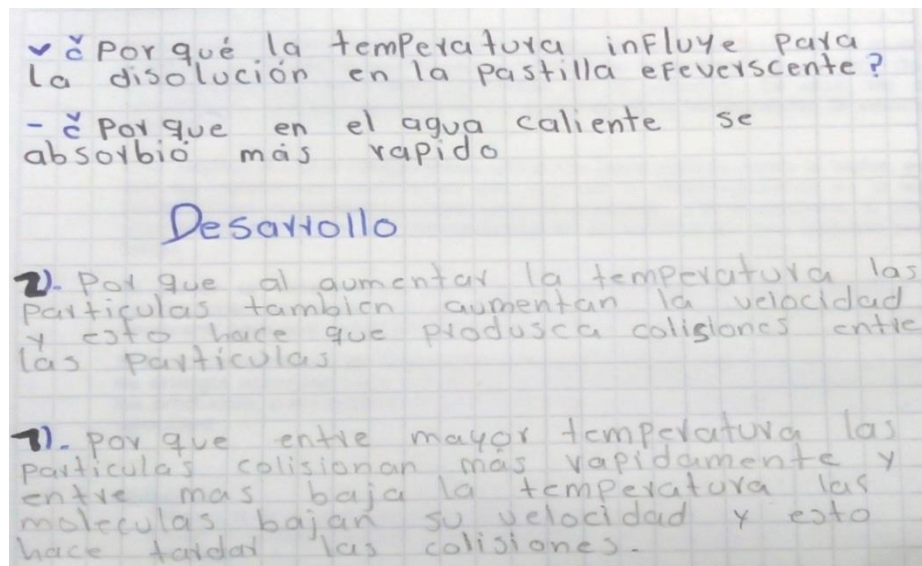 ✓ ¿Por qué la temperatura influye para
La disolución en la pastilla efeverscente?
- ¿Por que en el agua caliente se
absorbió más rapido
Desarrollo
2). Por que al aumentar la temperatura las
particulas tambien aumentan la velocidad
y esto hace que produsca colisiones entre
las particulas
1). por que entre mayor temperatura las
particulas colisionan más rapidamente y
entre mas baja la temperatura las
moleculas bajan su velocidad y esto
hace tardar las colisiones.